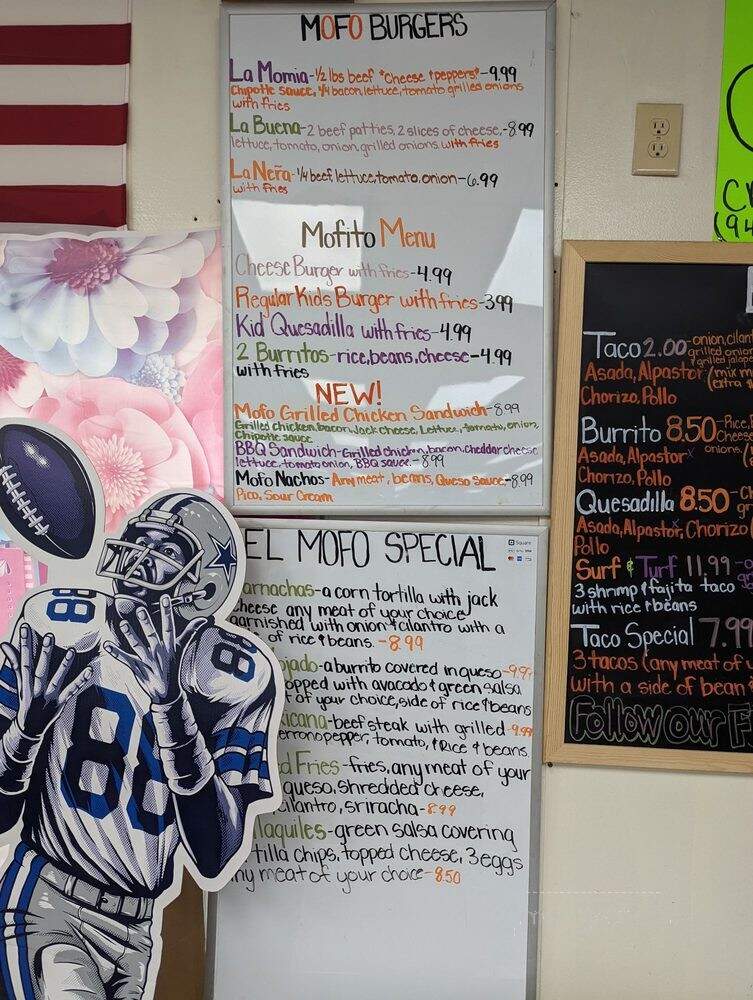 MOFO BURGERS
La Momia-½ lbs beef *cheese & peppers*-9.99
Chipotle sauce, ¼ bacon, lettuce, tomato grilled onions
with fries
La Buena-2 beef patties, 2 slices of cheese,-8.99
lettuce, tomato, onion, grilled onions with fries
La Neña-¼ beef, lettuce, tomato, onion-6.99
with fries
Mofito Menu
Cheese Burger with fries-4.99
Regular Kids Burger with fries-3.99
Kid Quesadilla with fries-4.99
2 Burritos-rice, beans, cheese-4.99
with fries
NEW!
Mofo Grilled Chicken Sandwich-8.99
Grilled chicken, bacon, Jack cheese, Lettuce, tomato, onion,
Chipotle sauce
BBQ Sandwich-Grilled chicken, bacon, Cheddar cheese
lettuce, tomato onion, BBQ sauce.-8.99
Mofo Nachos-Any meat, beans, Queso sauce-8.99
Pico, Sour Cream
EL MOFO SPECIAL
Square
arnachas-a corn tortilla with jack
cheese any meat of your choice
garnished with onion & cilantro with a
of rice & beans.-8.99
jado-a burrito covered in queso-9.99
opped with avacado & green salsa
of your choice, side of rice & beans
xicana-beef steak with grilled-9.99
errono pepper, tomato, & Rice & beans
d Fries-fries, any meat of your
queso, shredded cheese,
cilantro, sriracha-8.99
laquiles-green salsa covering
tilla chips, topped cheese, 3 eggs
ny meat of your choice-8.50
Taco 2.00-onion, cilan
grilled onion
grilled jalape
Asada, Alpastor (mix m
extra
Chorizo, Pollo
Burrito 8.50-Rice, b
Cheese
onions.
Asada, Alpastor
Chorizo, Pollo
Quesadilla 8.50-Ch
gr
Asada, Alpastor, Chorizo
Pollo
Surf & Turf 11.99
3 shrmp & fajita taco
with rice & beans
Taco Special 7.99
3 tacos (any meat of
with a side of bean
Follow our F
88
88
88
C
(94